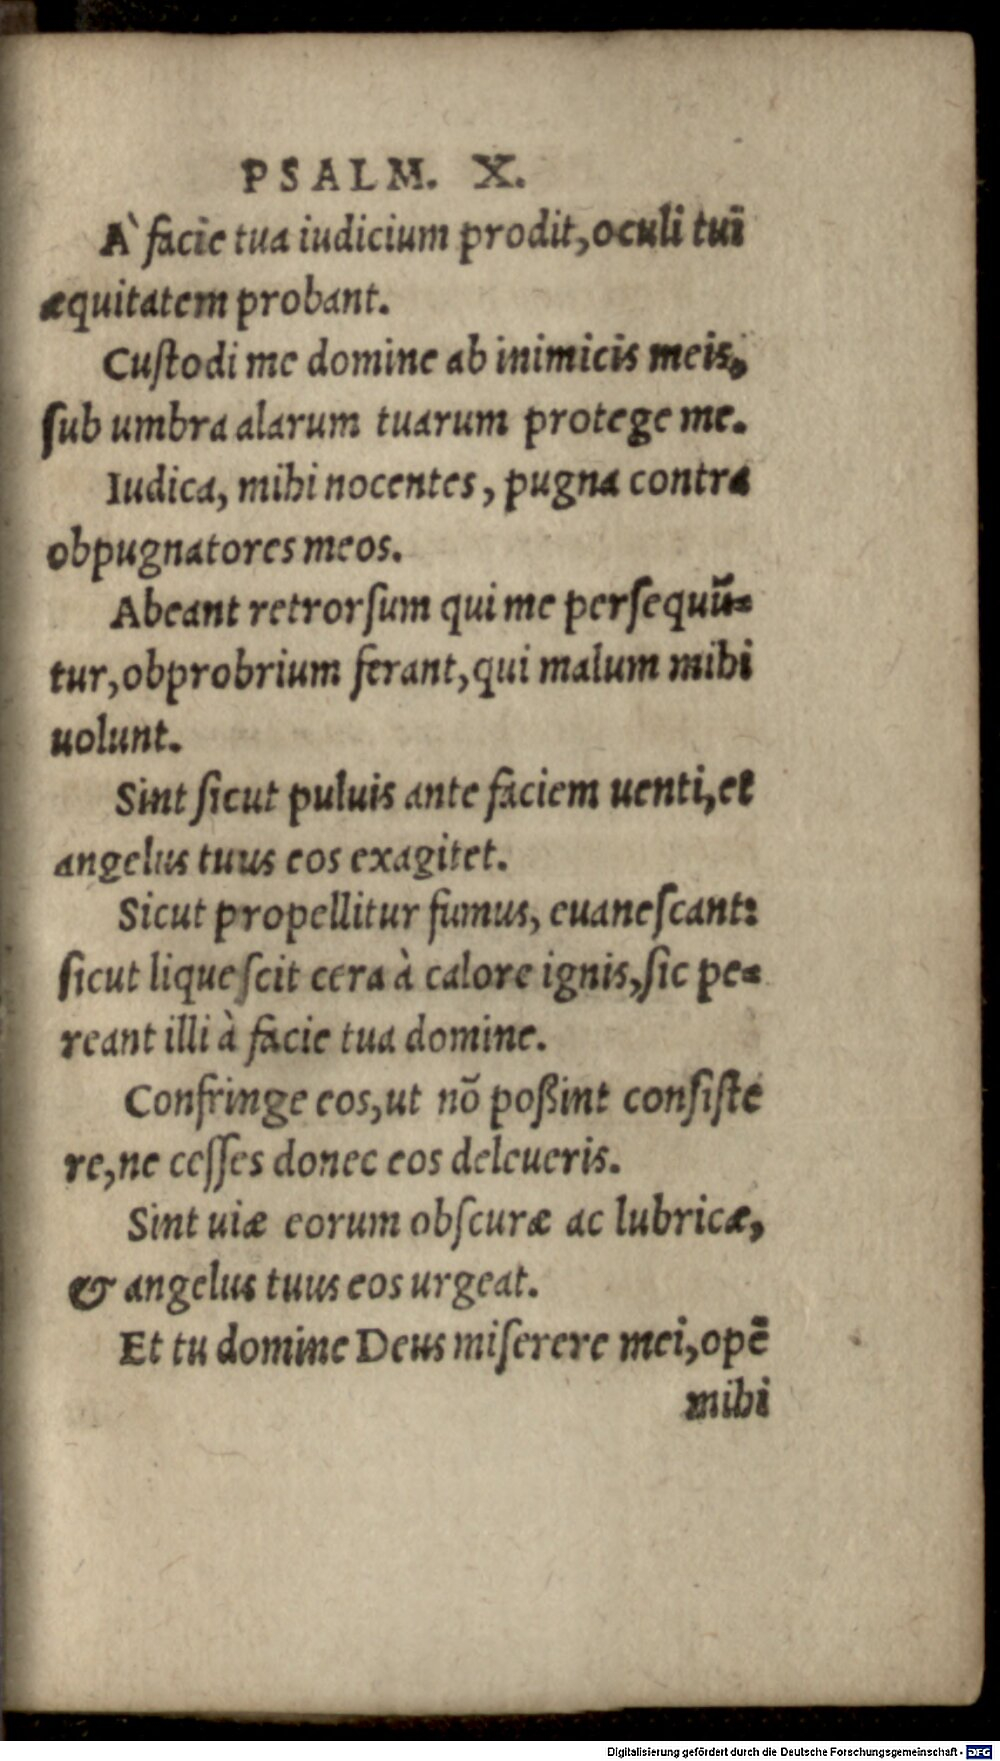 PSALM. X.
A` facie tua iudicium prodit, oculi tui
æquitatem probant.
Cuſtodi me domine ab inimicis meis,
ſub umbra alarum tuarum protege me.
Iudica, mihi nocentes, pugna contra
obpugnatores meos.
Abeant retrorſum qui me perſequū-
tur, obprobrium ferant, qui malum mihi
uolunt.
Sint ſicut puluis ante faciem uenti, et
angelus tuus eos exagitet.
Sicut propellitur fumus, euaneſcant:
ſicut liqueſcit cera à calore ignis, ſic pe-
reant illi à facie tua domine.
Confringe eos, ut nō poßint conſiſte
re, ne ceſſes donec eos deleueris.
Sint uiæ eorum obſcuræ ac lubricæ,
& angelus tuus eos urgeat.
Et tu domine Deus miſerere mei, opē
mihi
Digitalisierung gefördert durch die Deutsche Forschungsgemeinschaft - DFG